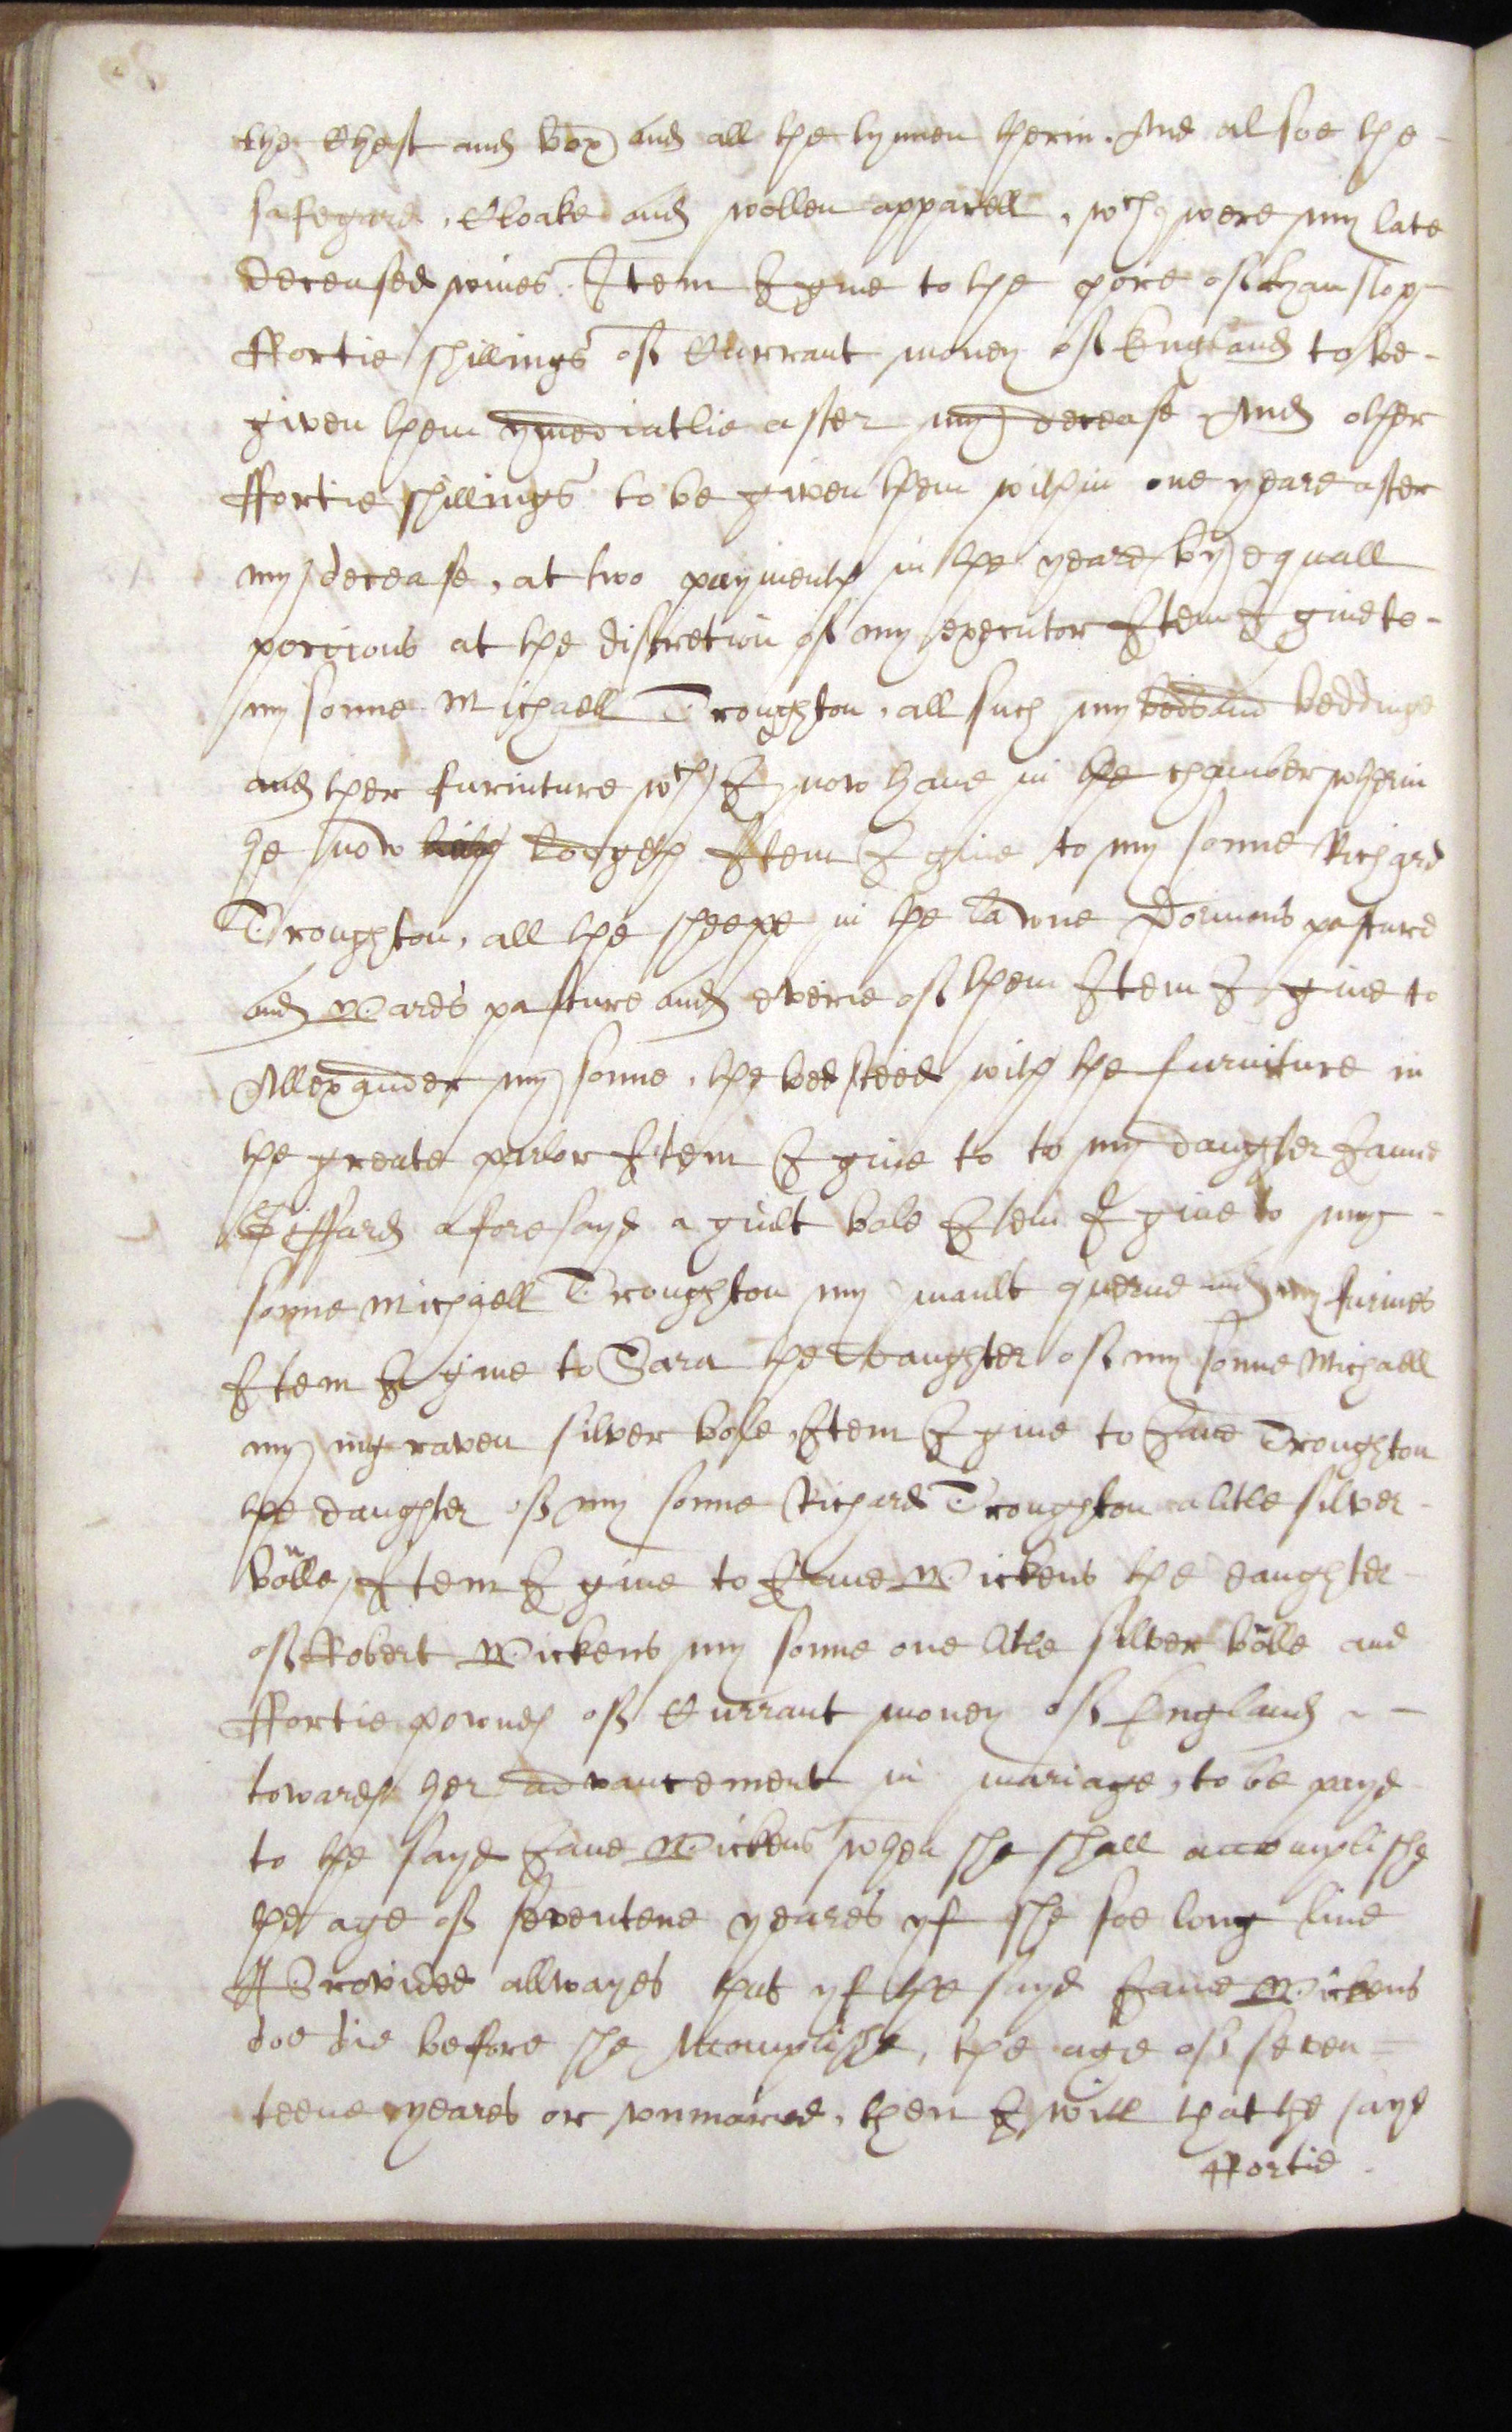 the Chest and box and all the lynnen therin. And alsoe the
safegard, Cloake and wollen apparell, wch were my late
deceased wives. Item I give to the pore of Hanslop
ffortie shillings of Currant money of England to be
given them ymediatlie after my decease And other
ffortie shillings to be given them within one yeare after
my decease, at two payments in the yeare by equall
porcions at the discretion of my executor Item I give to
my sonne Michaell Troughton, all such my beds and beddinge
and ther furniture wch I now have in the chamber wherin
he now lodgeth Item I give to my sonne Richard
Troughton, all the sheepe in the Lawne Dormons pasture
and Wards pasture and everie of them Item I give to
Allexander my sonne, the bedsteed with the furniture in
the greate parlor Item I give to to my daughter Jane
Giffard aforesayd a guilt bole Item I give to my
sonne Michaell Troughton my mault querne and my furnies
Item I give to Sara the daughter of my sonne Michaell
my ingraven silver bole, Item I give to Jane Troughton
the daughter of my sonne Richard Troughton a litle silver
bolle, Item I give to Jane Wickens the daughter
of Robert Wickens my sonne one litle silver bolle and
ffortie pownds of Currant money of England
towards her advancement in mariage, to be payd
to the sayd Jane Wickens when she shall accomplishe
the age of seventene yeares yf she soe long live
Provided allwayes that yf the sayd Jane Wickens
doe die before she Accomplishe, the age of seven
teene yeares or vnmaried, then I will that the sayd
ffortie